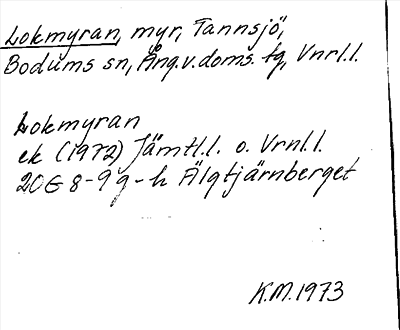 Lokmyran, myr, Tannsjö,
Bodums sn, Ång.v.doms. tg, Vnrl.l.
Lokmyran
ek (1972) Jämtl.l. o. Vrnl.l.
20G 8-9 g-h Älgtjärnberget
K.M.1973